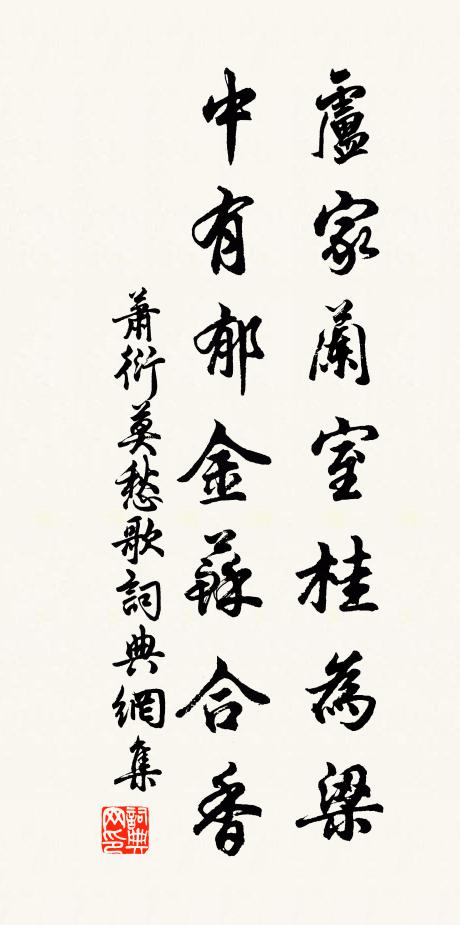 盧家蘭室桂為梁
中有郁金蘇合香
蕭衍莫愁歌詞典網集
詞典网印